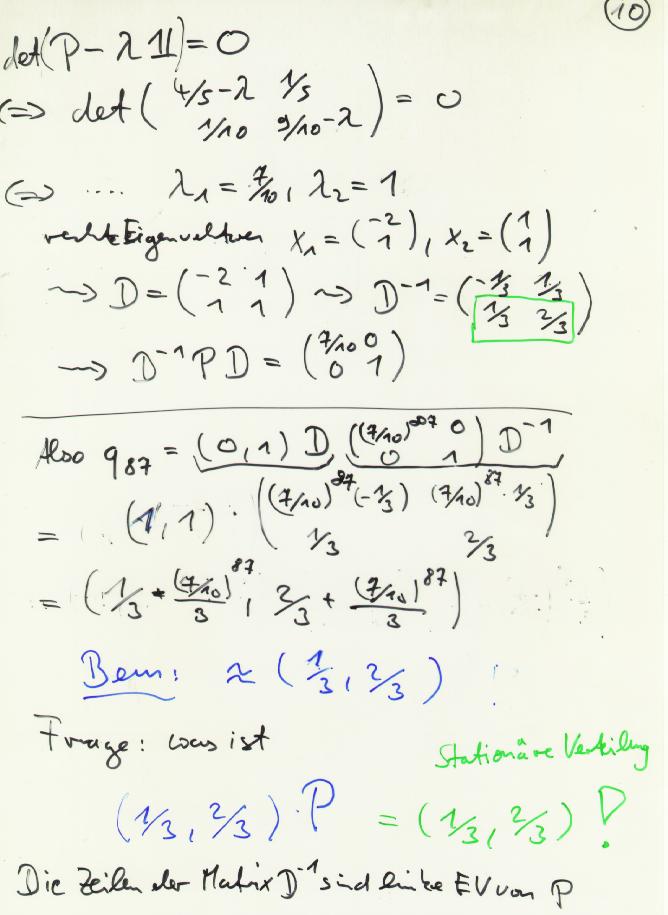 10
det(P - λ 𝟙) = 0
⇔ det ( 4/5-λ 1/5
1/10 9/10-λ ) = 0
⇔ .... λ₁ = 7/10, λ₂ = 1
rechte Eigenvektoren x₁ = (-2
1), x₂ = (1
1)
⇝ D = (-2 1
1 1) ⇝ D⁻¹ = (-1/3 1/3
1/3 2/3)
⇝ D⁻¹ P D = (7/10 0
0 1)
Also q₈₇ = (0,1) D ((7/10)⁸⁷ 0
0 1) D⁻¹
= (1, 1) · ((7/10)⁸⁷(-1/3) (7/10)⁸⁷ · 1/3
1/3 2/3)
= (1/3 - (7/10)⁸⁷/3, 2/3 + (7/10)⁸⁷/3)
Bem: ≈ (1/3, 2/3)
Frage: was ist
Stationäre Verteilung
(1/3, 2/3) · P = (1/3, 2/3) !
Die Zeilen der Matrix D⁻¹ sind linke EV von P